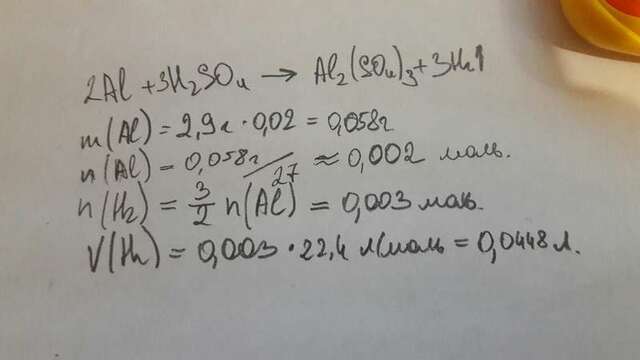 2Al + 3H₂SO₄ → Al₂(SO₄)₃ + 3H₂↑
m(Al) = 2,9г · 0,02 = 0,058г
n(Al) = 0,058г/27 ≈ 0,002 моль.
n(H₂) = 3/2 n(Al) = 0,003 моль.
V(H₂) = 0,003 · 22,4 л/моль = 0,0448 л.